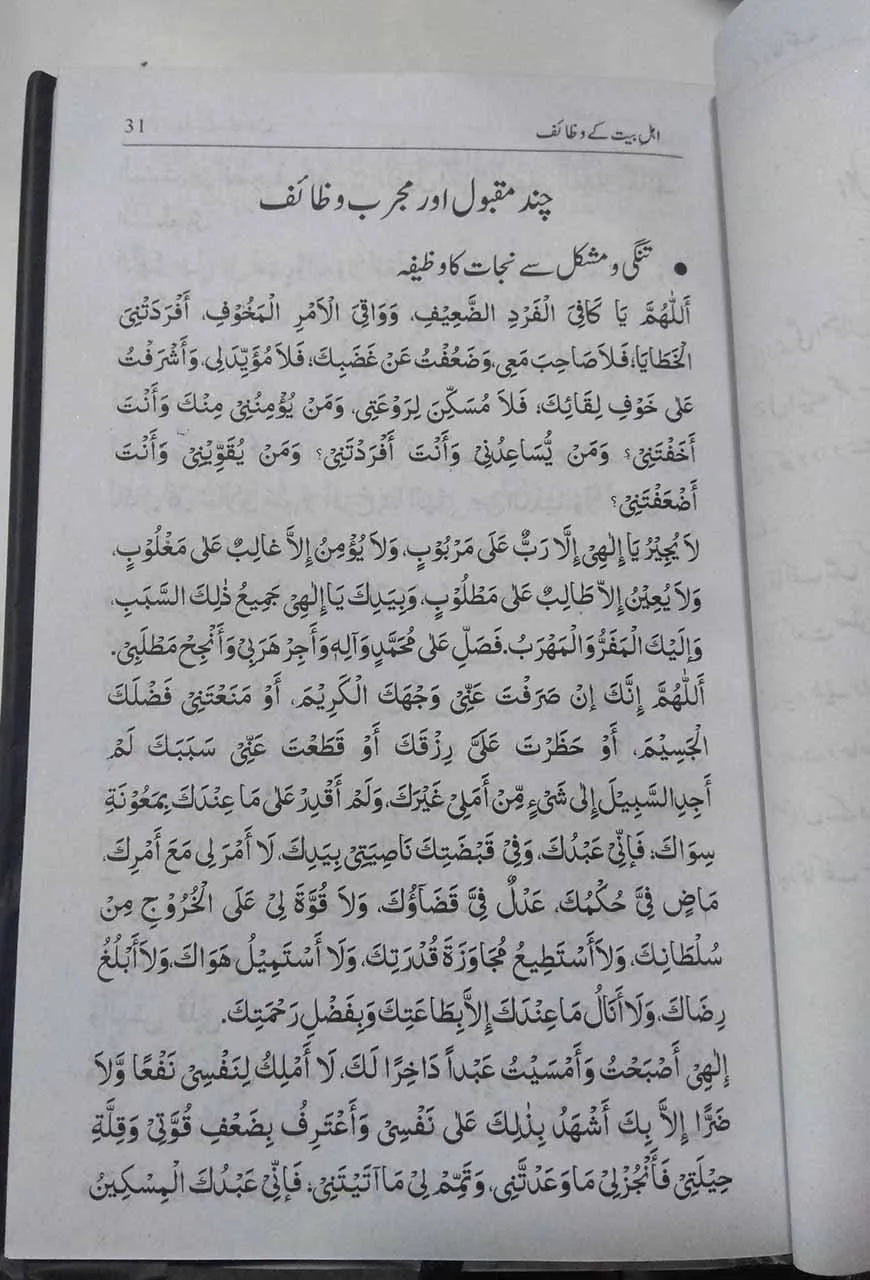 اہل بیت کے وظائف 31
چند مقبول اور مجرب وظائف
● تنگی و مشکل سے نجات کا وظیفہ
أَللّٰهُمَّ يَا كَافِيَ الْفَرْدِ الضَّعِيْفِ، وَوَاقِيَ الْاَمْرِ الْمَخُوْفِ، أَفْرَدَتْنِيَ
الْخَطَايَا؛ فَلَا صَاحِبَ مَعِي، وَضَعُفْتُ عَنْ غَضَبِكَ؛ فَلَا مُؤَيِّدَ لِي، وَأَشْرَفْتُ
عَلٰى خَوْفِ لِقَائِكَ؛ فَلَا مُسَكِّنَ لِرَوْعَتِي، وَمَنْ يُؤْمِنُنِيْ مِنْكَ وَأَنْتَ
أَخَفْتَنِيْ؟ وَمَنْ يُّسَاعِدُنِيْ وَأَنْتَ أَفْرَدْتَنِيْ؟ وَمَنْ يُقَوِّيْنِيْ وَأَنْتَ
أَضْعَفْتَنِيْ؟
لَا يُجِيْرُ يَا إِلٰهِيْ إِلَّا رَبٌّ عَلٰى مَرْبُوْبٍ، وَلَا يُؤْمِنُ إِلَّا غَالِبٌ عَلٰى مَغْلُوْبٍ،
وَلَا يُعِيْنُ إِلَّا طَالِبٌ عَلٰى مَطْلُوْبٍ، وَبِيَدِكَ يَا إِلٰهِيْ جَمِيْعُ ذٰلِكَ السَّبَبِ،
وَإِلَيْكَ الْمَفَرُّ وَالْمَهْرَبُ. فَصَلِّ عَلٰى مُحَمَّدٍ وَآلِهٖ وَأَجِرْ هَرَبِيْ وَأَنْجِحْ مَطْلَبِيْ.
أَللّٰهُمَّ إِنَّكَ إِنْ صَرَفْتَ عَنِّيْ وَجْهَكَ الْكَرِيْمَ، أَوْ مَنَعْتَنِيْ فَضْلَكَ
الْجَسِيْمَ، أَوْ حَظَرْتَ عَلَيَّ رِزْقَكَ أَوْ قَطَعْتَ عَنِّيْ سَبَبَكَ لَمْ
أَجِدِ السَّبِيْلَ إِلٰى شَيْءٍ مِّنْ أَمَلِيْ غَيْرَكَ، وَلَمْ أَقْدِرْ عَلٰى مَا عِنْدَكَ بِمَعُوْنَةِ
سِوَاكَ؛ فَإِنِّيْ عَبْدُكَ، وَفِيْ قَبْضَتِكَ نَاصِيَتِيْ بِيَدِكَ، لَا أَمْرَ لِي مَعَ أَمْرِكَ،
مَاضٍ فِيَّ حُكْمُكَ، عَدْلٌ فِيَّ قَضَاؤُكَ، وَلَا قُوَّةَ لِيْ عَلَى الْخُرُوْجِ مِنْ
سُلْطَانِكَ، وَلَا أَسْتَطِيعُ مُجَاوَزَةَ قُدْرَتِكَ، وَلَا أَسْتَمِيْلُ هَوَاكَ، وَلَا أَبْلُغُ
رِضَاكَ، وَلَا أَنَالُ مَا عِنْدَكَ إِلَّا بِطَاعَتِكَ وَبِفَضْلِ رَحْمَتِكَ.
إِلٰهِيْ أَصْبَحْتُ وَأَمْسَيْتُ عَبْداً دَاخِرًا لَكَ، لَا أَمْلِكُ لِنَفْسِيْ نَفْعًا وَّلَا
ضَرًّا إِلَّا بِكَ أَشْهَدُ بِذٰلِكَ عَلٰى نَفْسِيْ وَأَعْتَرِفُ بِضَعْفِ قُوَّتِيْ وَقِلَّةِ
حِيْلَتِيْ فَأَنْجُزْ لِيْ مَا وَعَدْتَّنِي، وَتَمِّمْ لِيْ مَا آتَيْتَنِيْ؛ فَإِنِّيْ عَبْدُكَ الْمِسْكِيْنُ